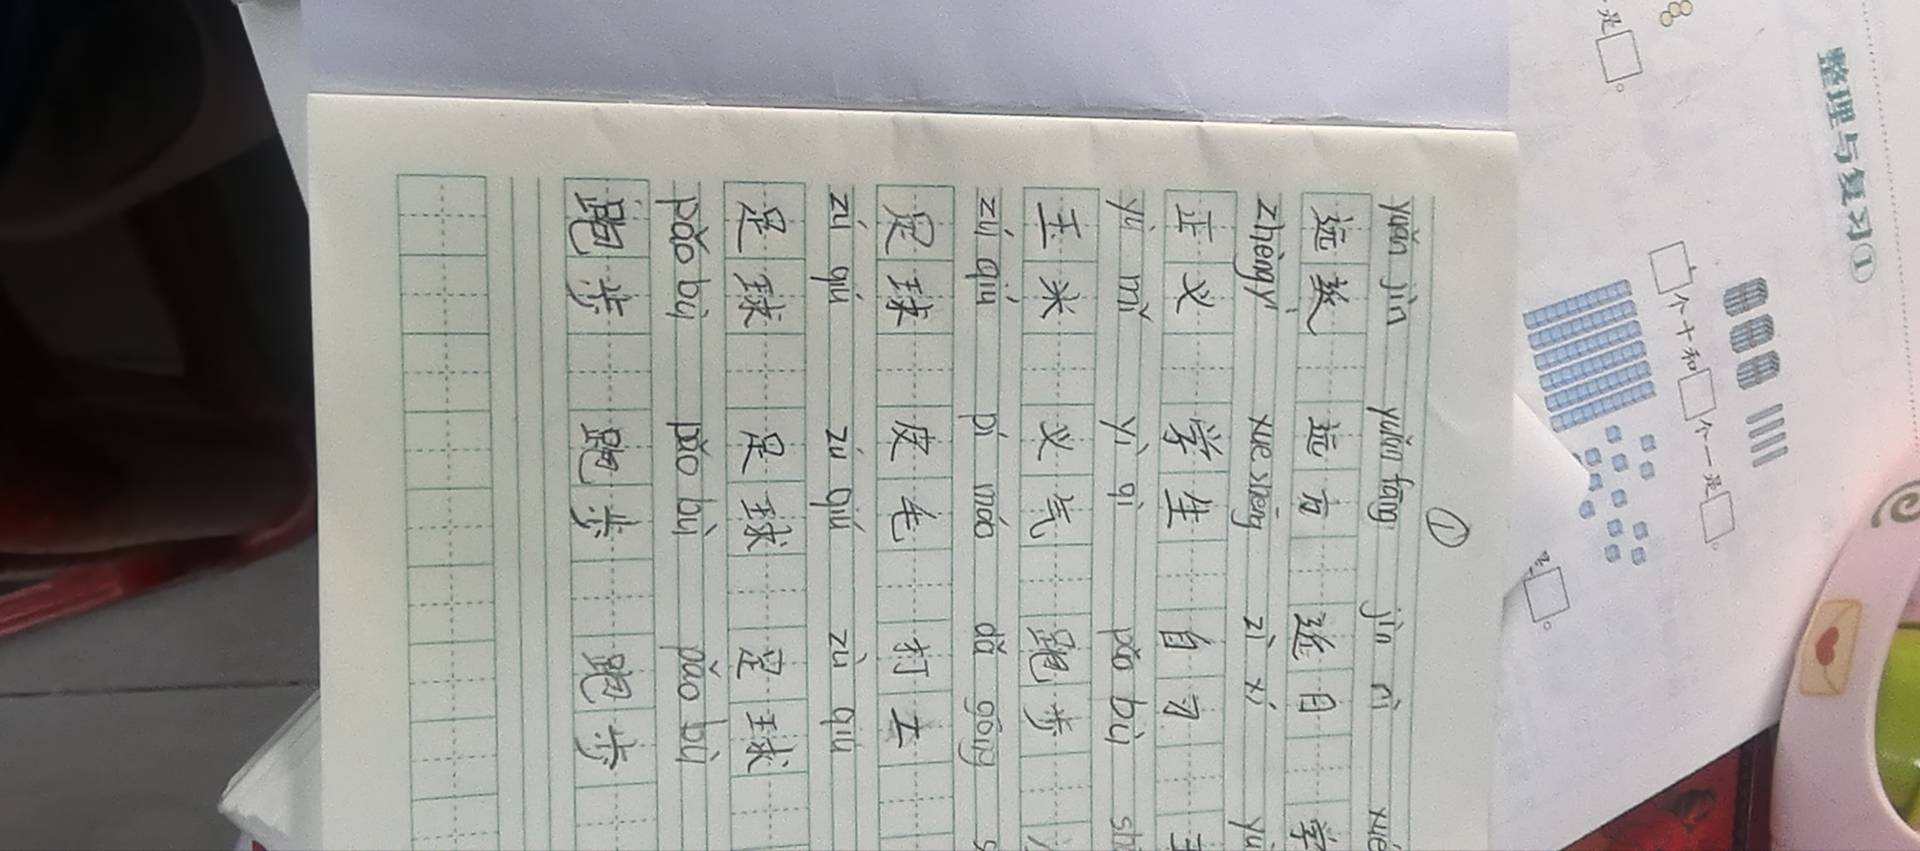 ①
yuǎn jìn yuǎn fāng jìn rì xué
远 远方 近日 学
zhèng yì xué shēng zì xí yù
正义 学生 自习
yù mǐ yì qì pǎo bù sh
玉米 义气 跑步
zú qiú pí máo dǎ gōng
足球 皮毛 打工
zú qiú zú qiú zú qiú
足球 足球 足球
pǎo bù pǎo bù pǎo bù
跑步 跑步 跑步
整理与复习①
个十和 个一是 。
是 。
是 。